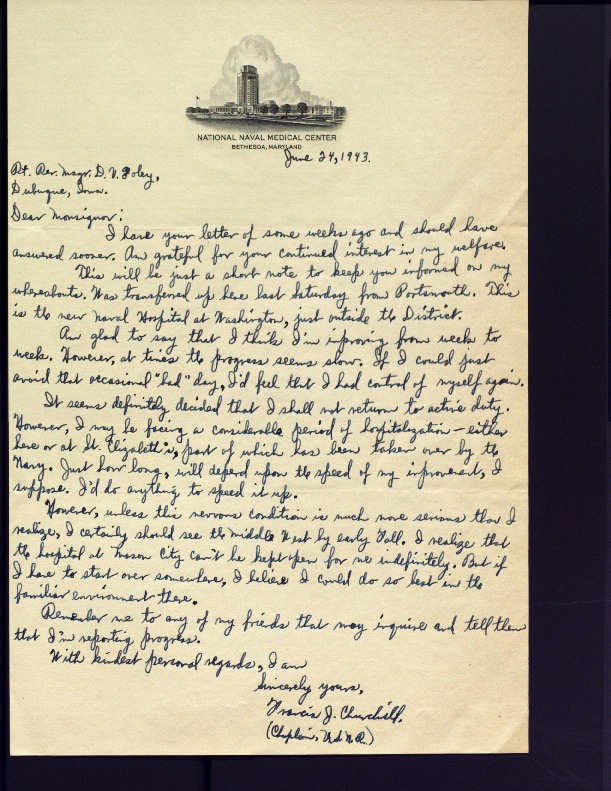 NATIONAL NAVAL MEDICAL CENTER
BETHESDA, MARYLAND
June 24, 1943.
Rt. Rev. Msgr. D. V. Foley,
Dubuque, Iowa.
Dear Monsignor:
I have your letter of some weeks ago and should have
answered sooner. Am grateful for your continued interest in my welfare.
This will be just a short note to keep you informed on my
whereabouts. Was transferred up here last Saturday from Portsmouth. This
is the new Naval Hospital at Washington, just outside the District.
Am glad to say that I think I'm improving from week to
week. However, at times the progress seems slow. If I could just
avoid that occasional "bad" day, I'd feel that I had control of myself again.
It seems definitely decided that I shall not return to active duty.
However, I may be facing a considerable period of hospitalization – either
here or at St. Elizabeth's, part of which has been taken over by the
Navy. Just how long, will depend upon the speed of my improvement, I
suppose. I'd do anything to speed it up.
However, unless this nervous condition is much more serious than I
realize, I certainly should see the middle West by early Fall. I realize that
the hospital at Mason City can't be kept open for me indefinitely. But if
I have to start over somewhere, I believe I could do so best in the
familiar environment there.
Remember me to any of my friends that may inquire and tell them
that I'm reporting progress.
With kindest personal regards, I am
Sincerely yours,
Francis J. Churchill.
(Chaplain, U.S.N.R.)